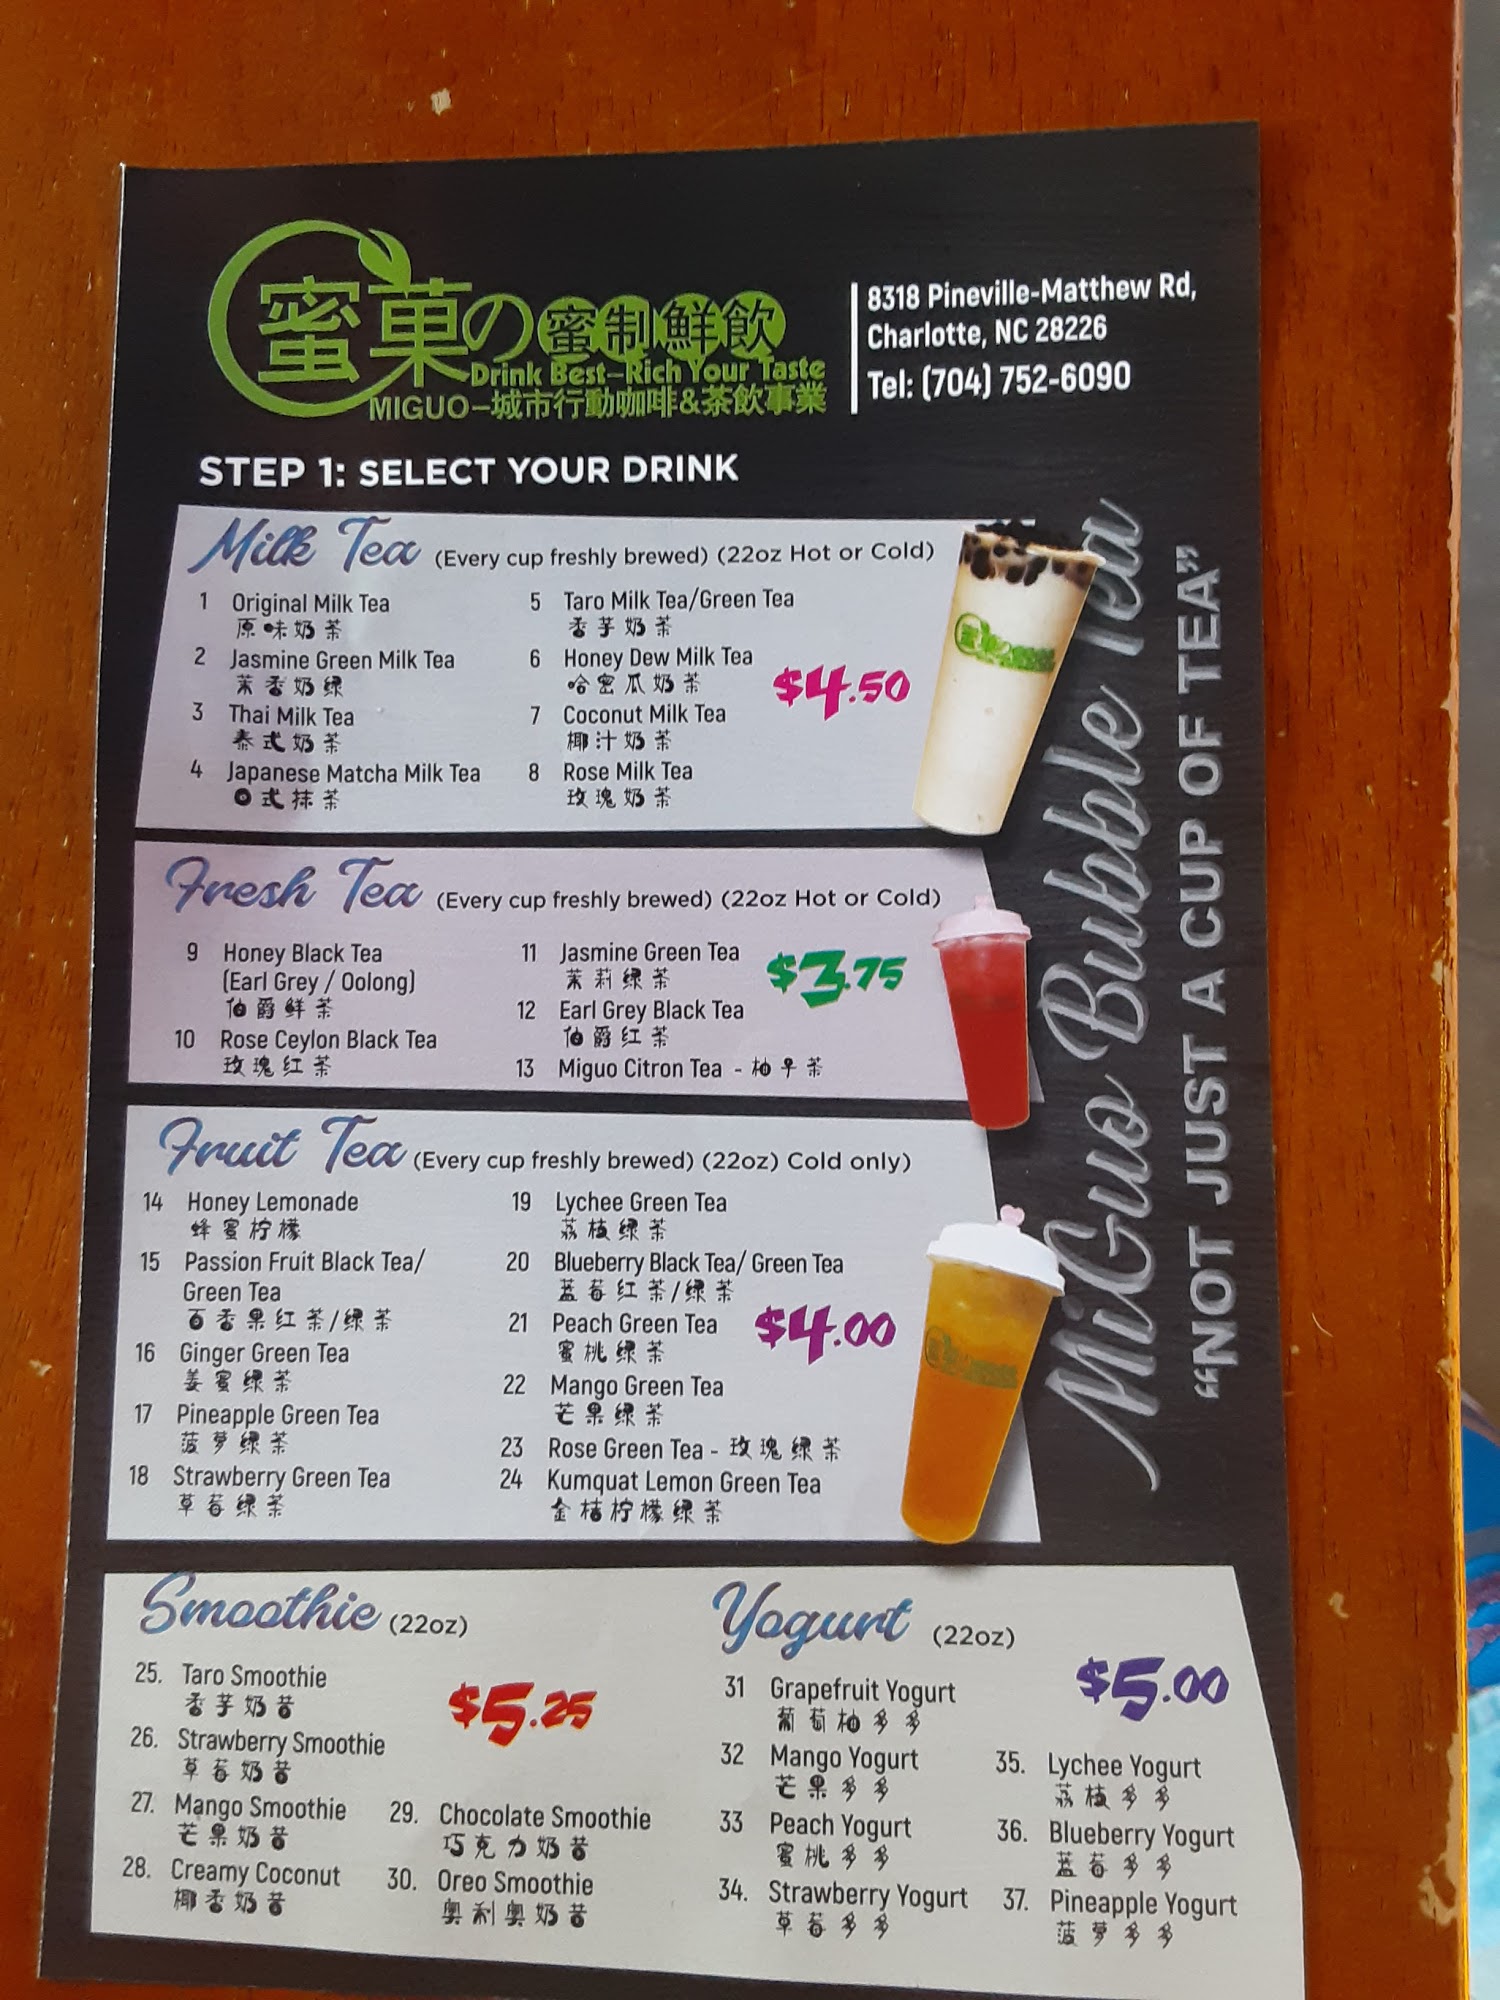 蜜菓の蜜制鮮飲
Drink Best-Rich Your Taste
MIGUO-城市行動咖啡&茶飲事業
8318 Pineville-Matthew Rd,
Charlotte, NC 28226
Tel: (704) 752-6090
STEP 1: SELECT YOUR DRINK
Milk Tea (Every cup freshly brewed) (22oz Hot or Cold)
1 Original Milk Tea
原味奶茶
2 Jasmine Green Milk Tea
茉香奶绿
3 Thai Milk Tea
泰式奶茶
4 Japanese Matcha Milk Tea
日式抹茶
5 Taro Milk Tea/Green Tea
香芋奶茶
6 Honey Dew Milk Tea
哈密瓜奶茶
7 Coconut Milk Tea
椰汁奶茶
8 Rose Milk Tea
玫瑰奶茶
$4.50
Fresh Tea (Every cup freshly brewed) (22oz Hot or Cold)
9 Honey Black Tea
(Earl Grey / Oolong)
伯爵鲜茶
10 Rose Ceylon Black Tea
玫瑰红茶
11 Jasmine Green Tea
茉莉绿茶
12 Earl Grey Black Tea
伯爵红茶
13 Miguo Citron Tea - 柚子茶
$3.75
Fruit Tea (Every cup freshly brewed) (22oz) Cold only)
14 Honey Lemonade
蜂蜜柠檬
15 Passion Fruit Black Tea/
Green Tea
百香果红茶/绿茶
16 Ginger Green Tea
姜蜜绿茶
17 Pineapple Green Tea
菠萝绿茶
18 Strawberry Green Tea
草莓绿茶
19 Lychee Green Tea
荔枝绿茶
20 Blueberry Black Tea/ Green Tea
蓝莓红茶/绿茶
21 Peach Green Tea
蜜桃绿茶
22 Mango Green Tea
芒果绿茶
23 Rose Green Tea - 玫瑰绿茶
24 Kumquat Lemon Green Tea
金桔柠檬绿茶
$4.00
Smoothie (22oz)
25. Taro Smoothie
香芋奶昔
26. Strawberry Smoothie
草莓奶昔
27. Mango Smoothie
芒果奶昔
28. Creamy Coconut
椰香奶昔
29. Chocolate Smoothie
巧克力奶昔
30. Oreo Smoothie
奥利奥奶昔
$5.25
Yogurt (22oz)
31 Grapefruit Yogurt
葡萄柚多多
32 Mango Yogurt
芒果多多
33 Peach Yogurt
蜜桃多多
34. Strawberry Yogurt
草莓多多
35. Lychee Yogurt
荔枝多多
36. Blueberry Yogurt
蓝莓多多
37. Pineapple Yogurt
菠萝多多
$5.00
MiGuo Bubble Tea
“NOT JUST A CUP OF TEA”